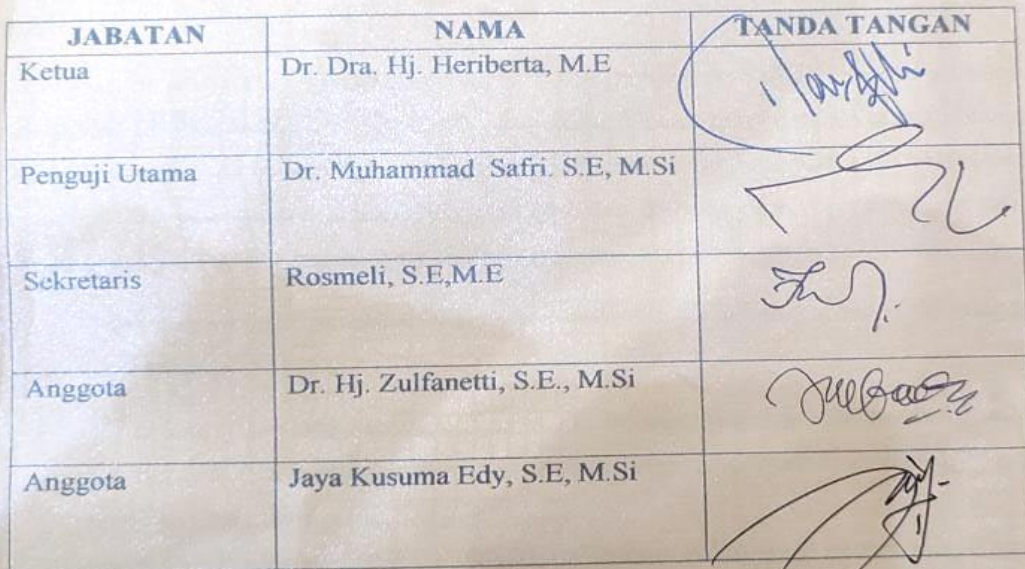 JABATAN NAMA TANDA TANGAN
Ketua Dr. Dra. Hj. Heriberta, M.E
Penguji Utama Dr. Muhammad Safri. S.E, M.Si
Sekretaris Rosmeli, S.E,M.E
Anggota Dr. Hj. Zulfanetti, S.E., M.Si
Anggota Jaya Kusuma Edy, S.E, M.Si